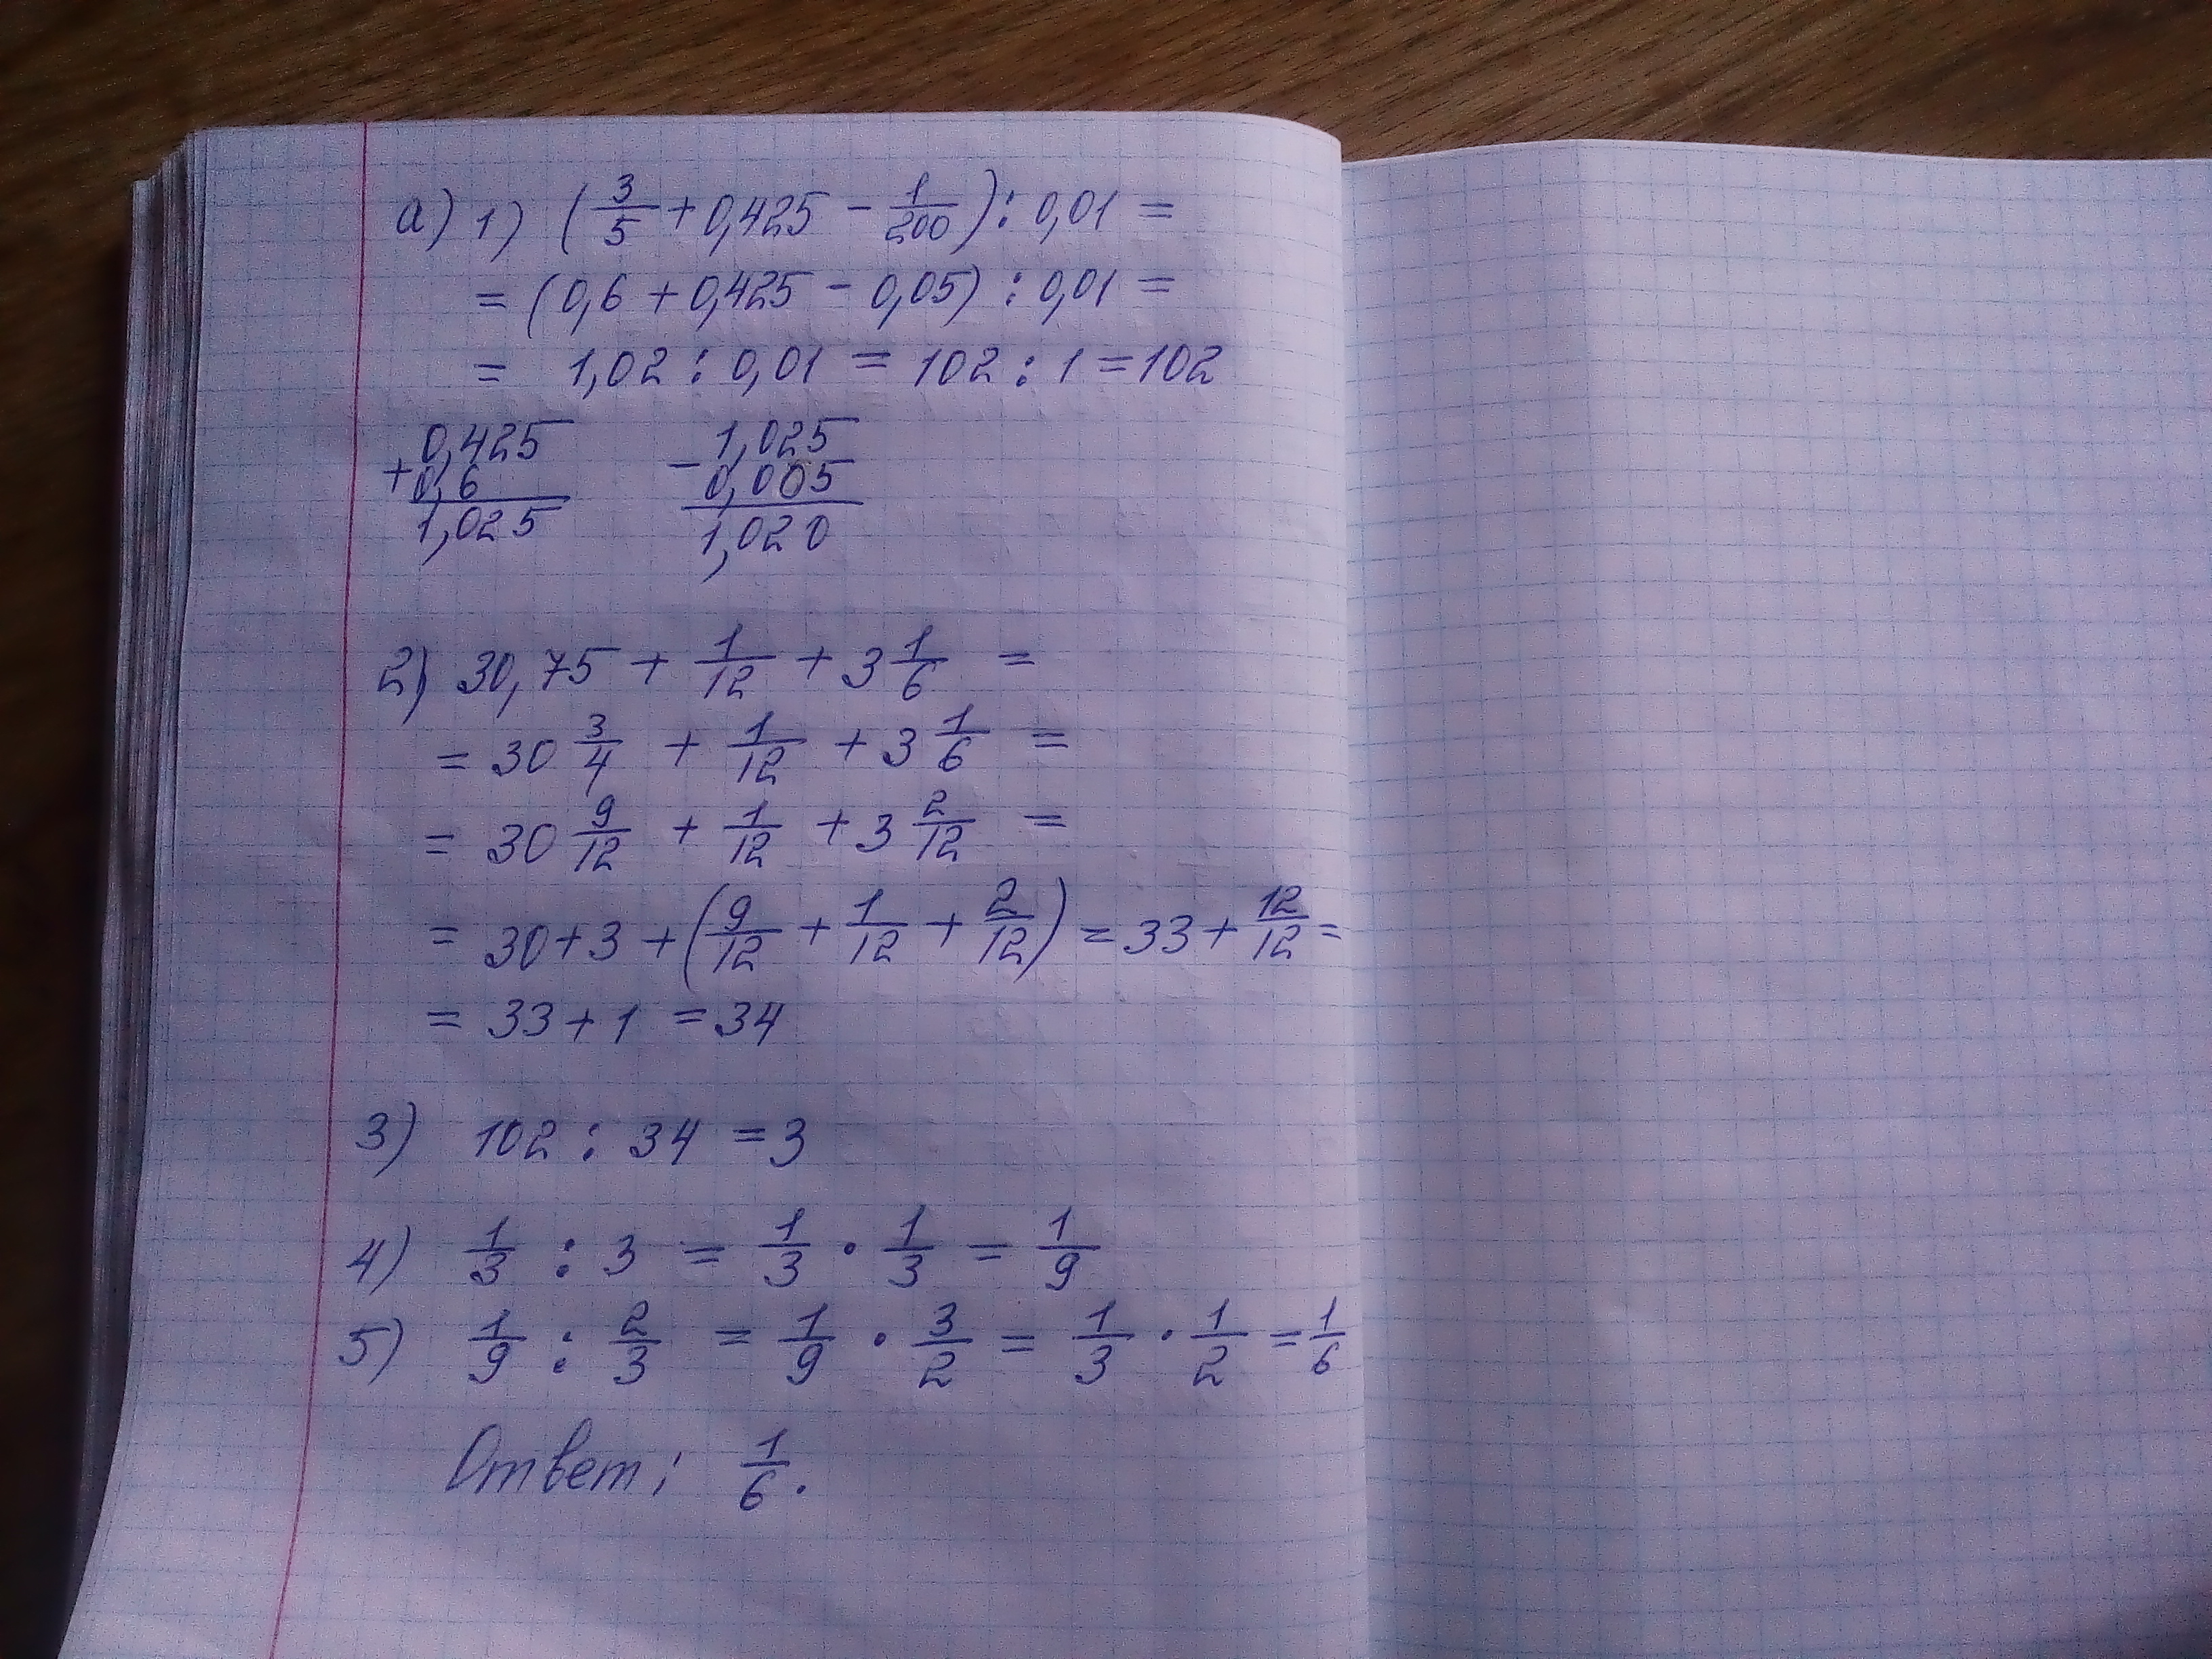 а) 1) (3/5 + 0,425 - 1/200) : 0,01 =
= (0,6 + 0,425 - 0,05) : 0,01 =
= 1,02 : 0,01 = 102 : 1 = 102
+ 0,425 - 1,025
0,6 0,005
1,025 1,020
2) 30,75 + 1/12 + 3 1/6 =
= 30 3/4 + 1/12 + 3 1/6 =
= 30 9/12 + 1/12 + 3 2/12 =
= 30 + 3 + (9/12 + 1/12 + 2/12) = 33 + 12/12 =
= 33 + 1 = 34
3) 102 : 34 = 3
4) 1/3 : 3 = 1/3 · 1/3 = 1/9
5) 1/9 : 2/3 = 1/9 · 3/2 = 1/3 · 1/2 = 1/6
Ответ: 1/6.